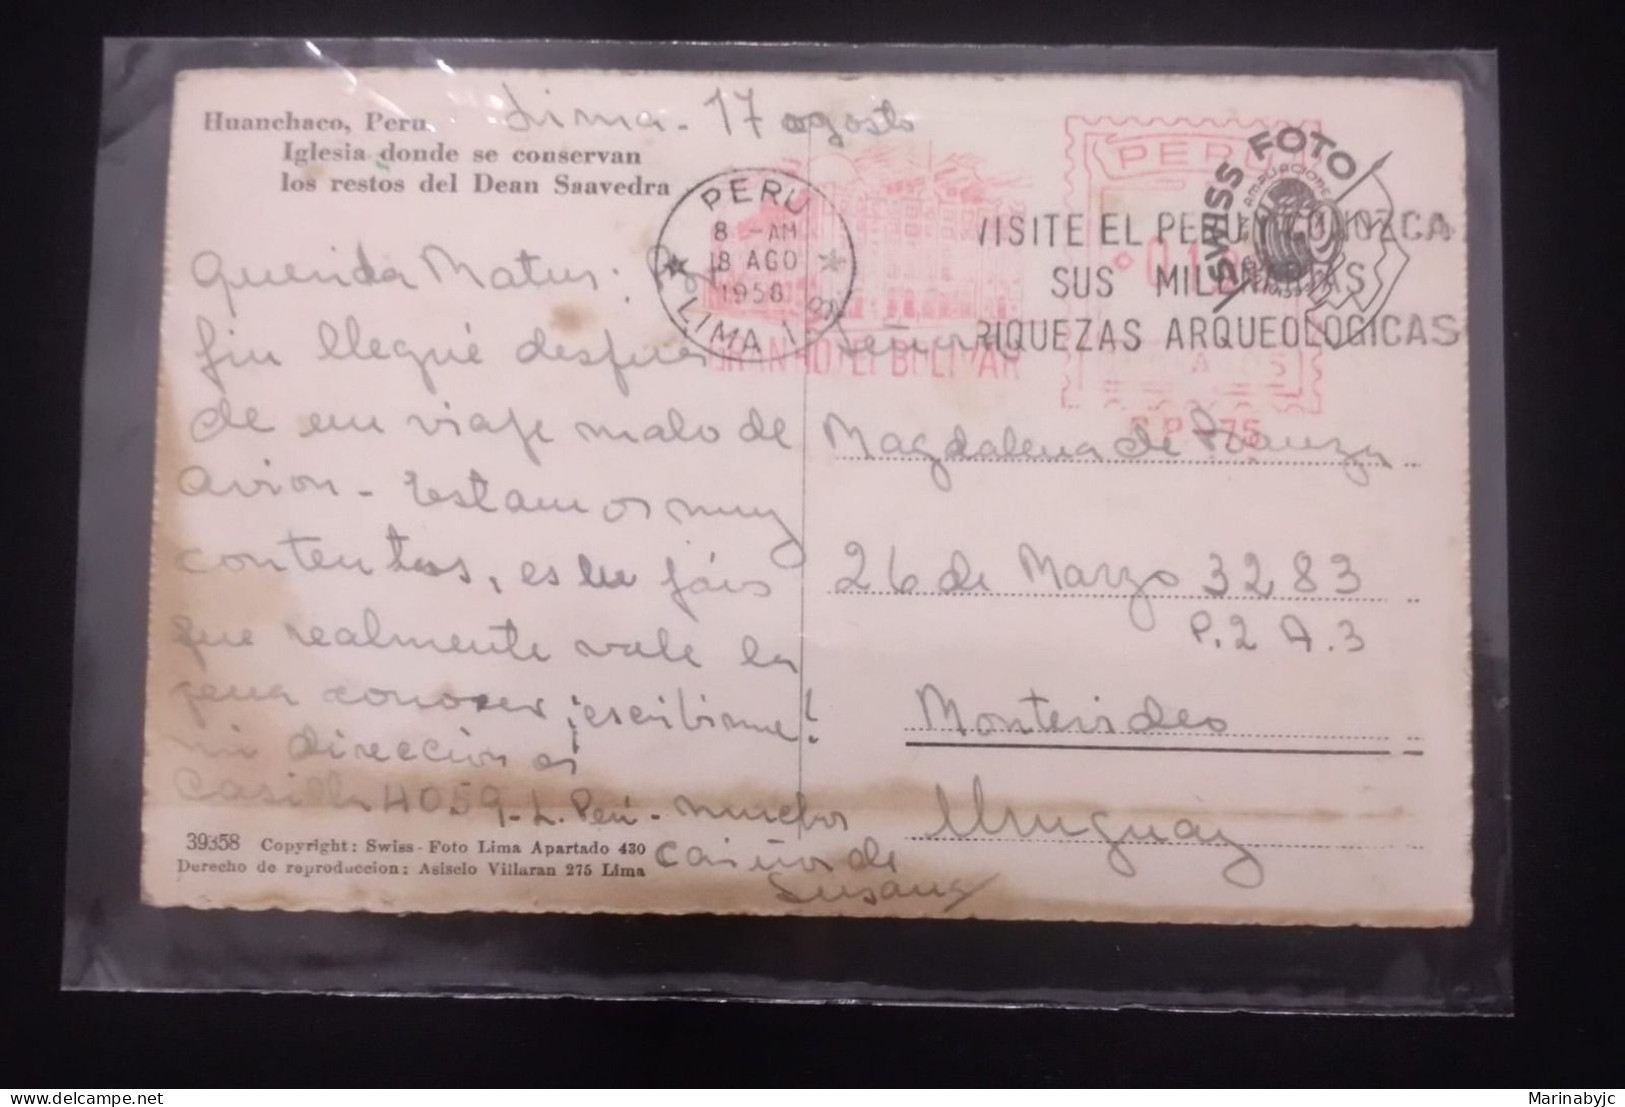 Huanchaco, Peru.
Iglesia donde se conservan
los restos del Dean Saavedra
Lima - 17 agosto
PERU
8 - AM
18 AGO
1958
LIMA
GRAN HOTEL BOLIVAR
VISITE EL PERU Y CONOZCA
SUS MILENARIAS
RIQUEZAS ARQUEOLOGICAS
PERU
SWISS FOTO
Querida Matus: Por
fin llegué despues
de un viaje malo de
avion - estamos muy
contentas, es un páis
que realmente vale la
pena conocer ¡escribime!
mi direccion es
Casilla 4059 - L. Perú - muchos
cariños de
Susana
Señora
Magdalena de
26 de Marzo 3283
P.2 A.3
Montevideo
Uruguay
39358 Copyright: Swiss-Foto Lima Apartado 430
Derecho de reproduccion: Asisclo Villaran 275 Lima
Marinabyjc